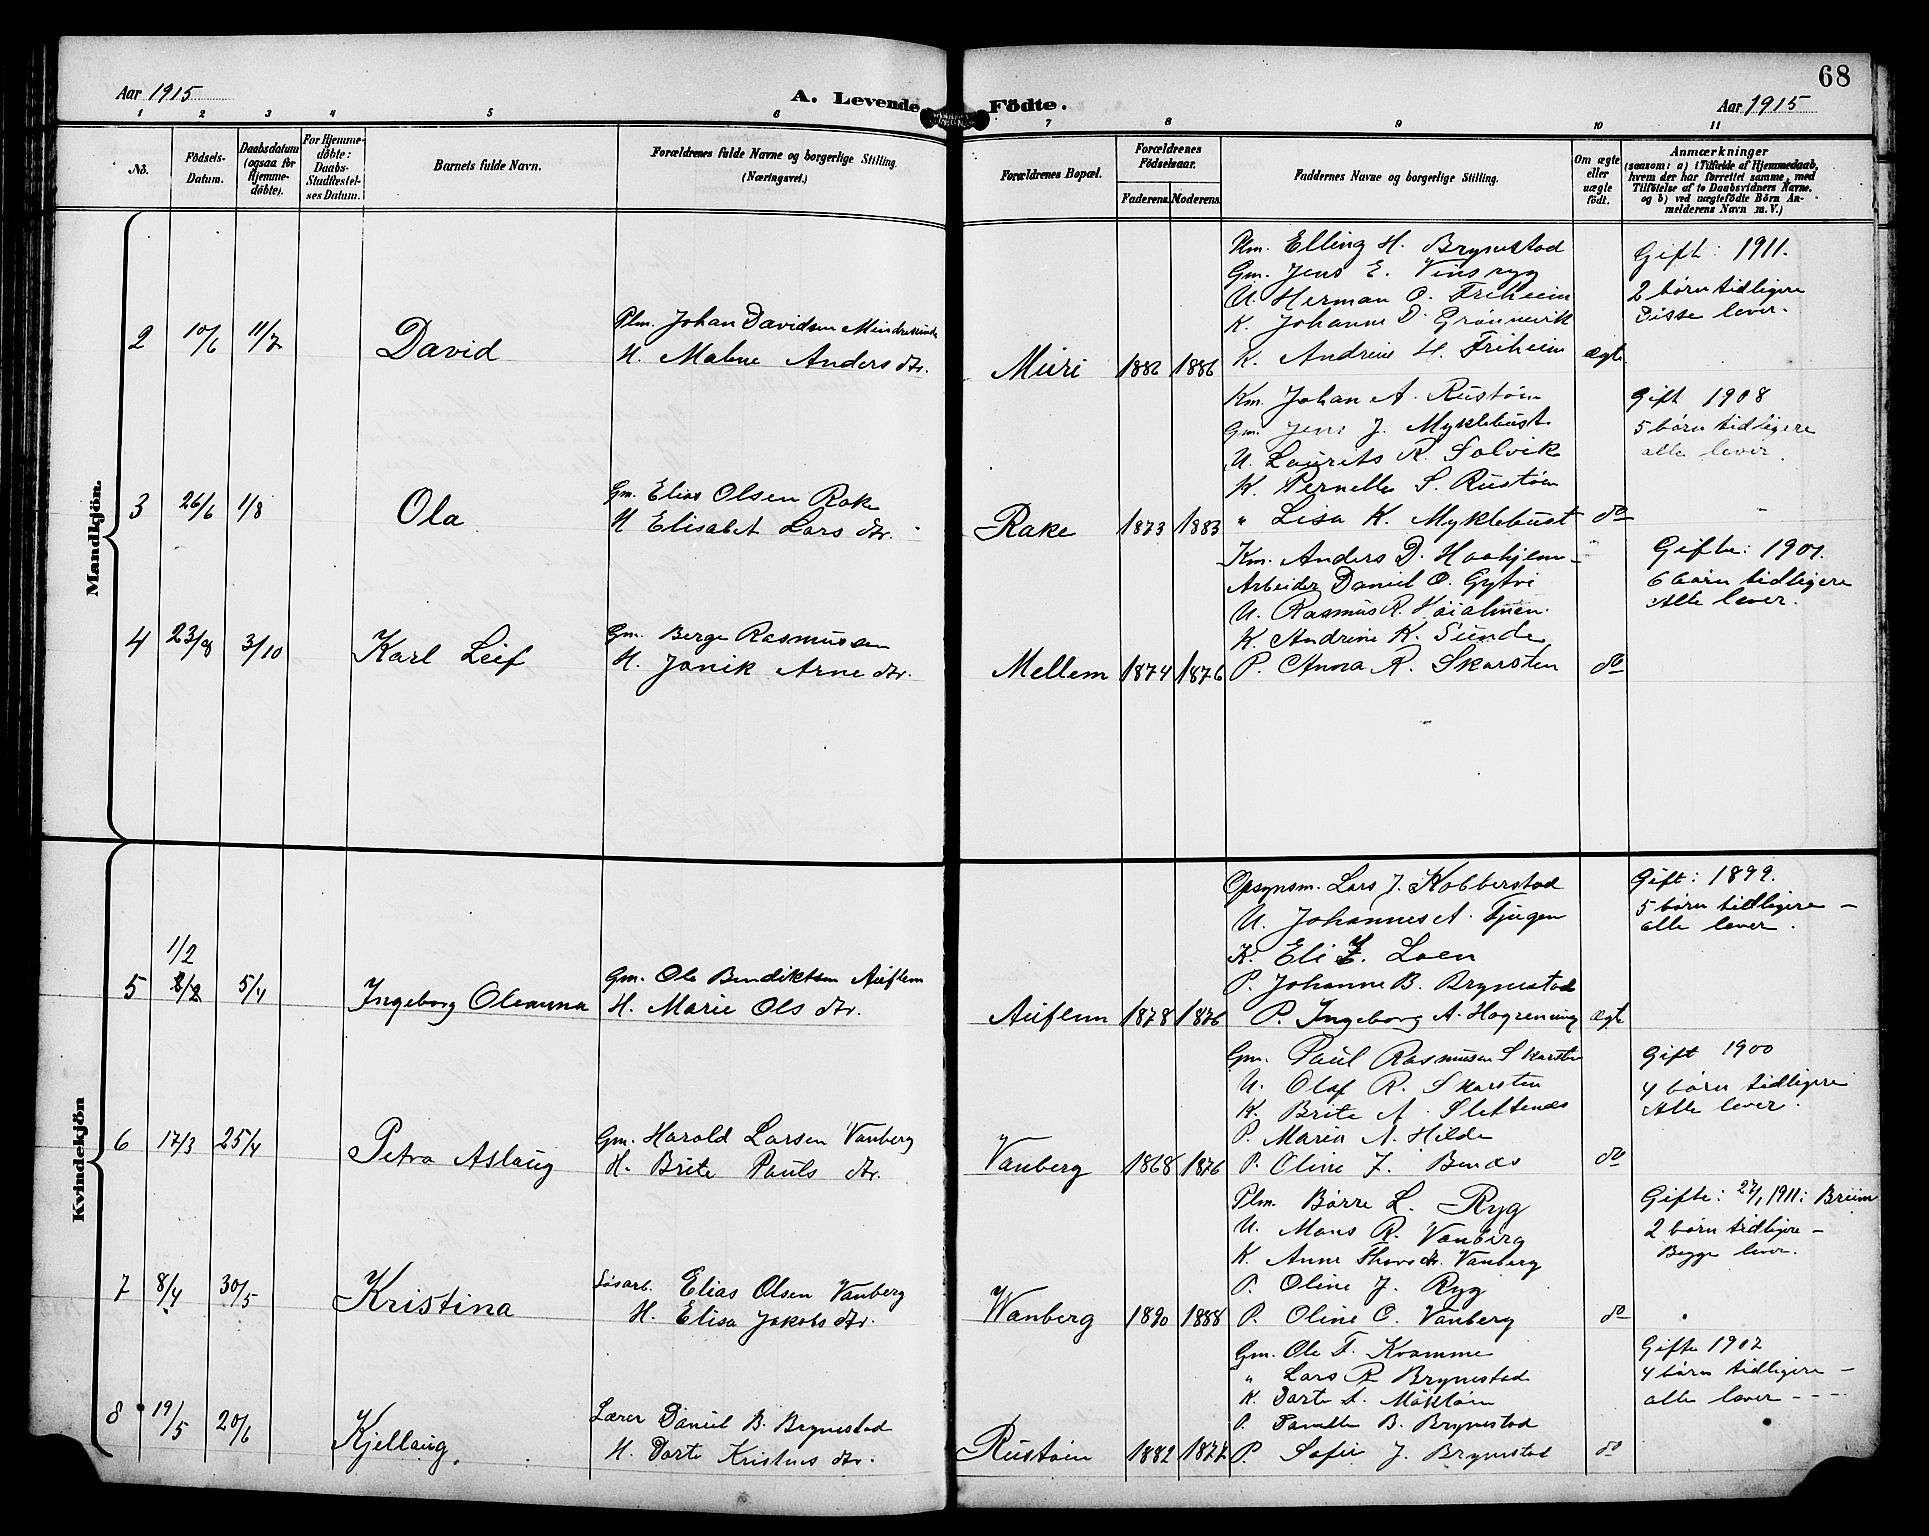 68
Aar 1915
A. Levende Födte.
Aar 1915
1 2 3 4 5 6 7 8 9 10 11
No.
Födsels-Datum.
Daabsdatum (ogsaa for Hjemmedöbte).
For Hjemmedöbte: Daabs-Stadfæstelses Datum.
Barnets fulde Navn.
Forældrenes fulde Navne og borgerlige Stilling. (Næringsvei.)
Forældrenes Bopæl.
Forældrenes Födselsaar.
Faderens. Moderens.
Faddernes Navne og borgerlige Stilling.
Om ægte eller uægte födt.
Anmærkninger
(saasom: a) i Tilfælde af Hjemmedaab,
hvem der har forrettet samme, med
Tilföielse af to Daabsvidners Navne,
og b) ved uægtefödte Börn An-
melderens Navn m.V.)
Mandkjön.
2 10/6 11/7 David
Plm. Johan Davidsen
H. Malene Anders dtr.
Muri 1886 1886
Elling H. Brynestad
Gm. Jens E. Vinsryg
U. Herman O. Friheim
K. Johanne D. Grønnevik
K. Andrine H. Friheim ægte
Gift: 1911.
2 børn tidligere
Disse lever.
3 26/6 1/8 Ola
Gm. Elias Olsen Rake
H Elisabet Lars dtr.
Rake 1873 1883
Km. Johan A. Rustøen
Gm. Jens J. Myklebust
U. Laurits R. Solvik
K. Pernelle S. Rustøen
" Lisa K. Myklebust do
Gift 1908
5 børn tidligere
alle lever.
4 23/8 3/10 Karl Leif
Gm. Berge Rasmussen
H. Janik Arne dtr.
Mellem 1874 1876
Km. Anders D. Haahjem
Arbeider Daniel O. Gytri
U. Rasmus R. Høialmen.
K. Andrine K. Sunde
P. Anna R. Skarsten do
Gifte: 1901.
6 børn tidligere
Alle lever.
Kvindekjön
5 1/2 2/2 5/4 Ingeborg Olemina
Gm. Ole Bendiktsen Auflem
H. Marie Ols dtr.
Auflem 1878 1876
Opsynsm. Lars J. Kobberstad
U. Johannes A. Tjugen
K. Eli Loen
P. Johanne B. Brynestad
P. Ingeborg A. Hogrenning ægte
Gift: 1899.
5 børn tidligere –
alle lever.
6 17/3 25/4 Petra Aslaug
Gm. Harald Larsen Vanberg
H. Brite Pauls dtr.
Vanberg 1868 1876
Gm. Paul Rasmusen Skarsten
U. Olaf R. Skarsten
K. Brite A. Slettenes
P. Maria A. Hilde
P. Oline J. Bendes do
Gift 1900
4 børn tidligere
Alle lever.
7 8/4 30/5 Kristina
Løsarb. Elias Olsen Vanberg
H. Elisa Jakobs dtr.
Wanberg 1890 1888
Plm. Børre L. Ryg
U. Mons R. Vanberg
K. Anne Thorsdtr. Vanberg
P. Oline J. Ryg
P. Oline O. Vanberg do
Gifte: 27/1 1911: Breim
2 børn tidligere –
Begge lever.
8 19/5 20/6 Kjellaug.
Lærer Daniel B. Brynestad
H. Dorte Kristens dtr.
Rustøen 1882 1877
Gm. Ole F. Kvamme
" Lars R Brynestad
K Dorte A.
P. B. Brynestad
P. Sofie J. Brynestad do
Gifte 1902
4 børn tidligere –
alle lever – – –